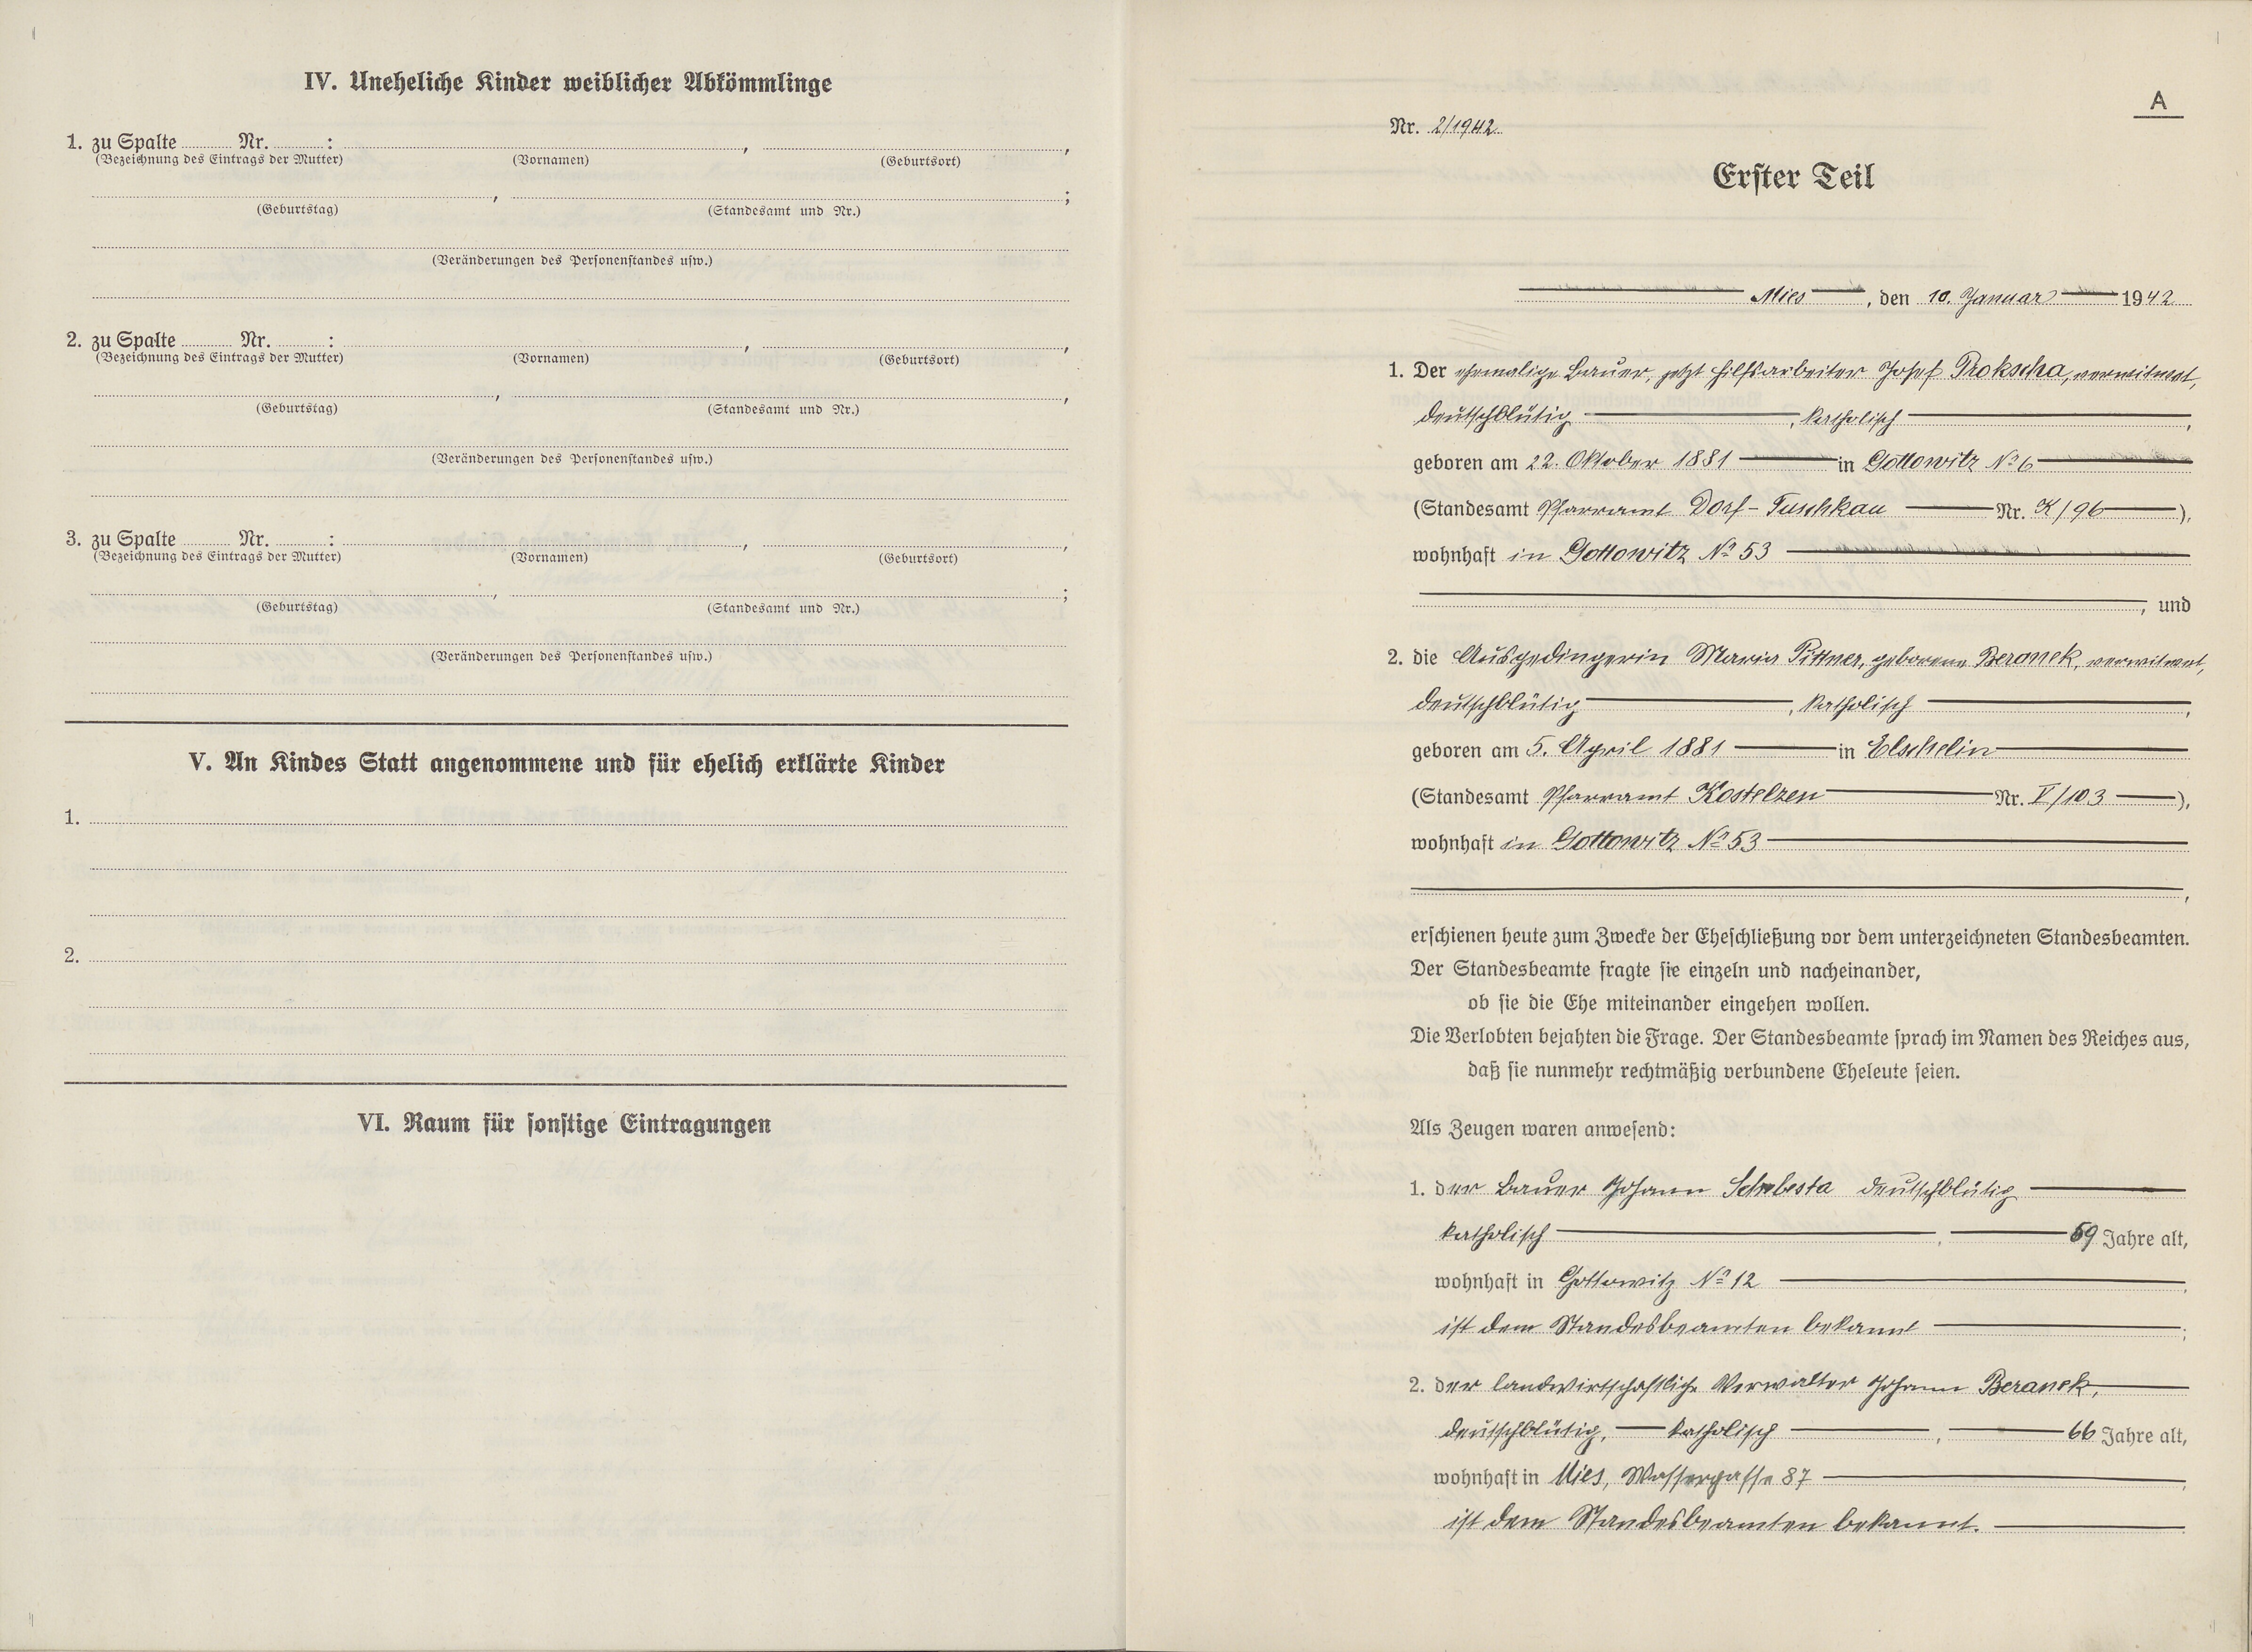 IV. Uneheliche Kinder weiblicher Abkömmlinge
1. zu Spalte ........ Nr. ........ : ........, ........,
(Bezeichnung des Eintrags der Mutter) (Vornamen) (Geburtsort)
........, ........;
(Geburtstag) (Standesamt und Nr.)
(Veränderungen des Personenstandes usw.)
2. zu Spalte ........ Nr. ........ : ........, ........,
(Bezeichnung des Eintrags der Mutter) (Vornamen) (Geburtsort)
........, ........,
(Geburtstag) (Standesamt und Nr.)
(Veränderungen des Personenstandes usw.)
3. zu Spalte ........ Nr. ........ : ........, ........,
(Bezeichnung des Eintrags der Mutter) (Vornamen) (Geburtsort)
........, ........;
(Geburtstag) (Standesamt und Nr.)
(Veränderungen des Personenstandes usw.)
V. An Kindes Statt angenommene und für ehelich erklärte Kinder
1.
2.
VI. Raum für sonstige Eintragungen
A
Nr. 2/1942
Erster Teil
Mies, den 10. Januar 1942
1. Der ehemalige Bauer, jetzt Hilfsarbeiter Josef Prokscha, verwitwet,
deutschblütig, katholisch,
geboren am 22. Oktober 1881 in Gottowitz No 6
(Standesamt Pfarramt Dorf-Tuschkau Nr. X/96),
wohnhaft in Gottowitz No 53
, und
2. die Ausgedingerin Maria Pittner, geborene Beranek, verwitwet,
deutschblütig, katholisch,
geboren am 5. April 1881 in Elschelin
(Standesamt Pfarramt Kostelzen Nr. V/103),
wohnhaft in Gottowitz No 53
,
erschienen heute zum Zwecke der Eheschließung vor dem unterzeichneten Standesbeamten.
Der Standesbeamte fragte sie einzeln und nacheinander,
ob sie die Ehe miteinander eingehen wollen.
Die Verlobten bejahten die Frage. Der Standesbeamte sprach im Namen des Reiches aus,
daß sie nunmehr rechtmäßig verbundene Eheleute seien.
Als Zeugen waren anwesend:
1. der Bauer Johann Schebesta deutschblütig
katholisch, 59 Jahre alt,
wohnhaft in Gottowitz No 12,
ist dem Standesbeamten bekannt;
2. der landwirtschaftliche Verwalter Johann Beranek,
deutschblütig, katholisch, 66 Jahre alt,
wohnhaft in Mies, Wassergasse 87,
ist dem Standesbeamten bekannt.